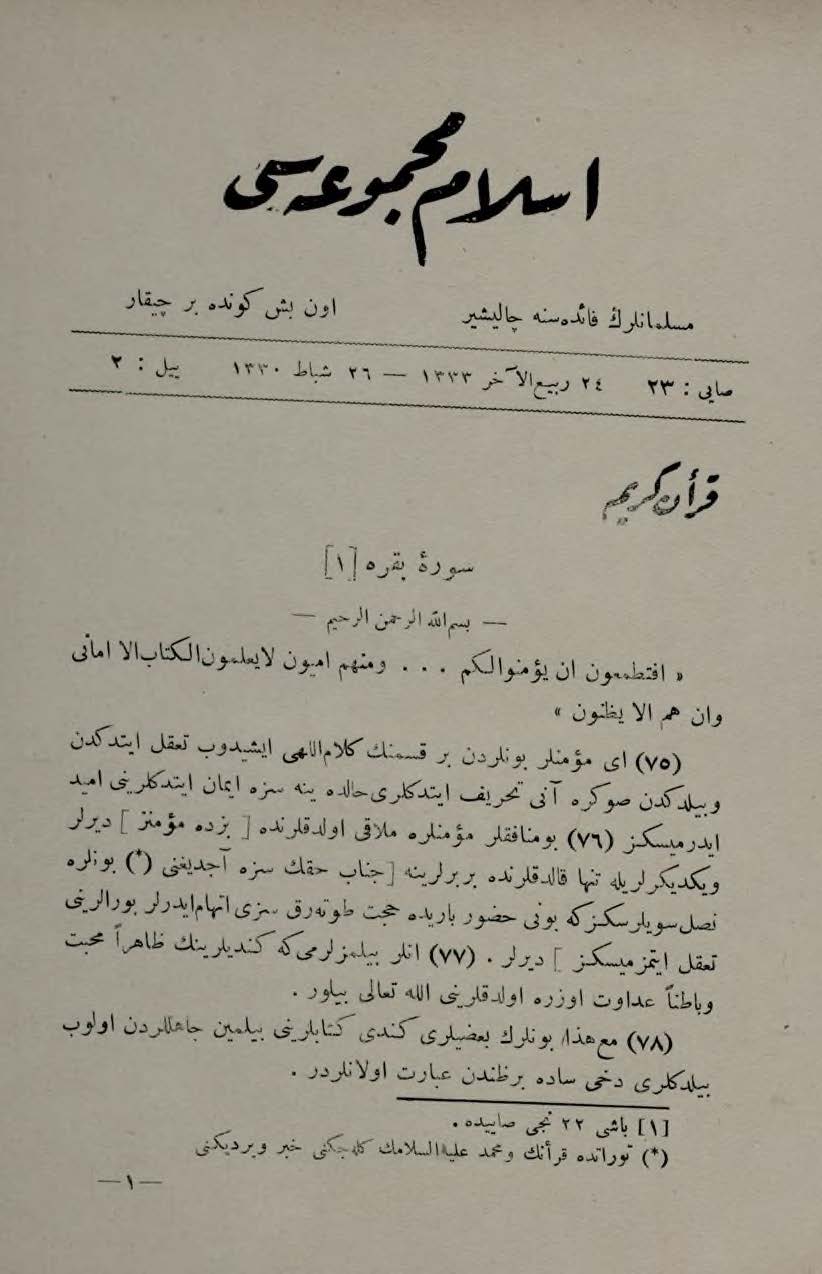 اسلام مجموعه‌سی
مسلمانلرڭ فائده‌سنه چالیشیر اون بش كونده بر چیقار
صایی : ٢٣ ٢٤ ربیع‌الآخر ١٣٣٣ — ٢٦ شباط ١٣٣٠ ییل : ٢
قرأن كریم
سورۀ بقره [١]
— بسم‌الله الرحمن الرحیم —
« افتطمعون ان یؤمنوالكم . . . ومنهم امیون لایعلمون‌الكتاب‌الا امانی
وان هم الا یظنون »
(٧٥) ای مؤمنلر بونلردن بر قسمنك كلام‌اللهی ایشیدوب تعقل ایتدكدن
وبیلدكدن صوكره آنی تحریف ایتدكلری‌حالده ینه سزه ایمان ایتدكلرینی امید
ایدرمیسكز (٧٦) بومنافقلر مؤمنلره ملاقی اولدقلرنده [ بزده مؤمنز ] دیرلر
ویكدیكرلریله تنها قالدقلرنده بربرلرینه [جناب حقك سزه آجدیغنی (*) بونلره
نصل‌سویلرسكزكه بونی حضور باریده حجت طوته‌رق سزی اتهام‌ایدرلر بورالرینی
تعقل ایتمزمیسكز ] دیرلر . (٧٧) انلر بیلمزلرمی‌كه كندیلرینك ظاهراً محبت
وباطناً عداوت اوزره اولدقلرینی الله تعالی بیلور .
(٧٨) مع‌هذا بونلرك بعضیلری كندی كتابلرینی بیلمین جاهللردن اولوب
بیلدكلری دخی ساده برظندن عبارت اولانلردر .
[١] باشی ٢٢ نجی صاییده .
(*) توراتده قرأنك ومحمد علیه‌السلامك كله‌جكنی خبر ویردیكنی
—١—